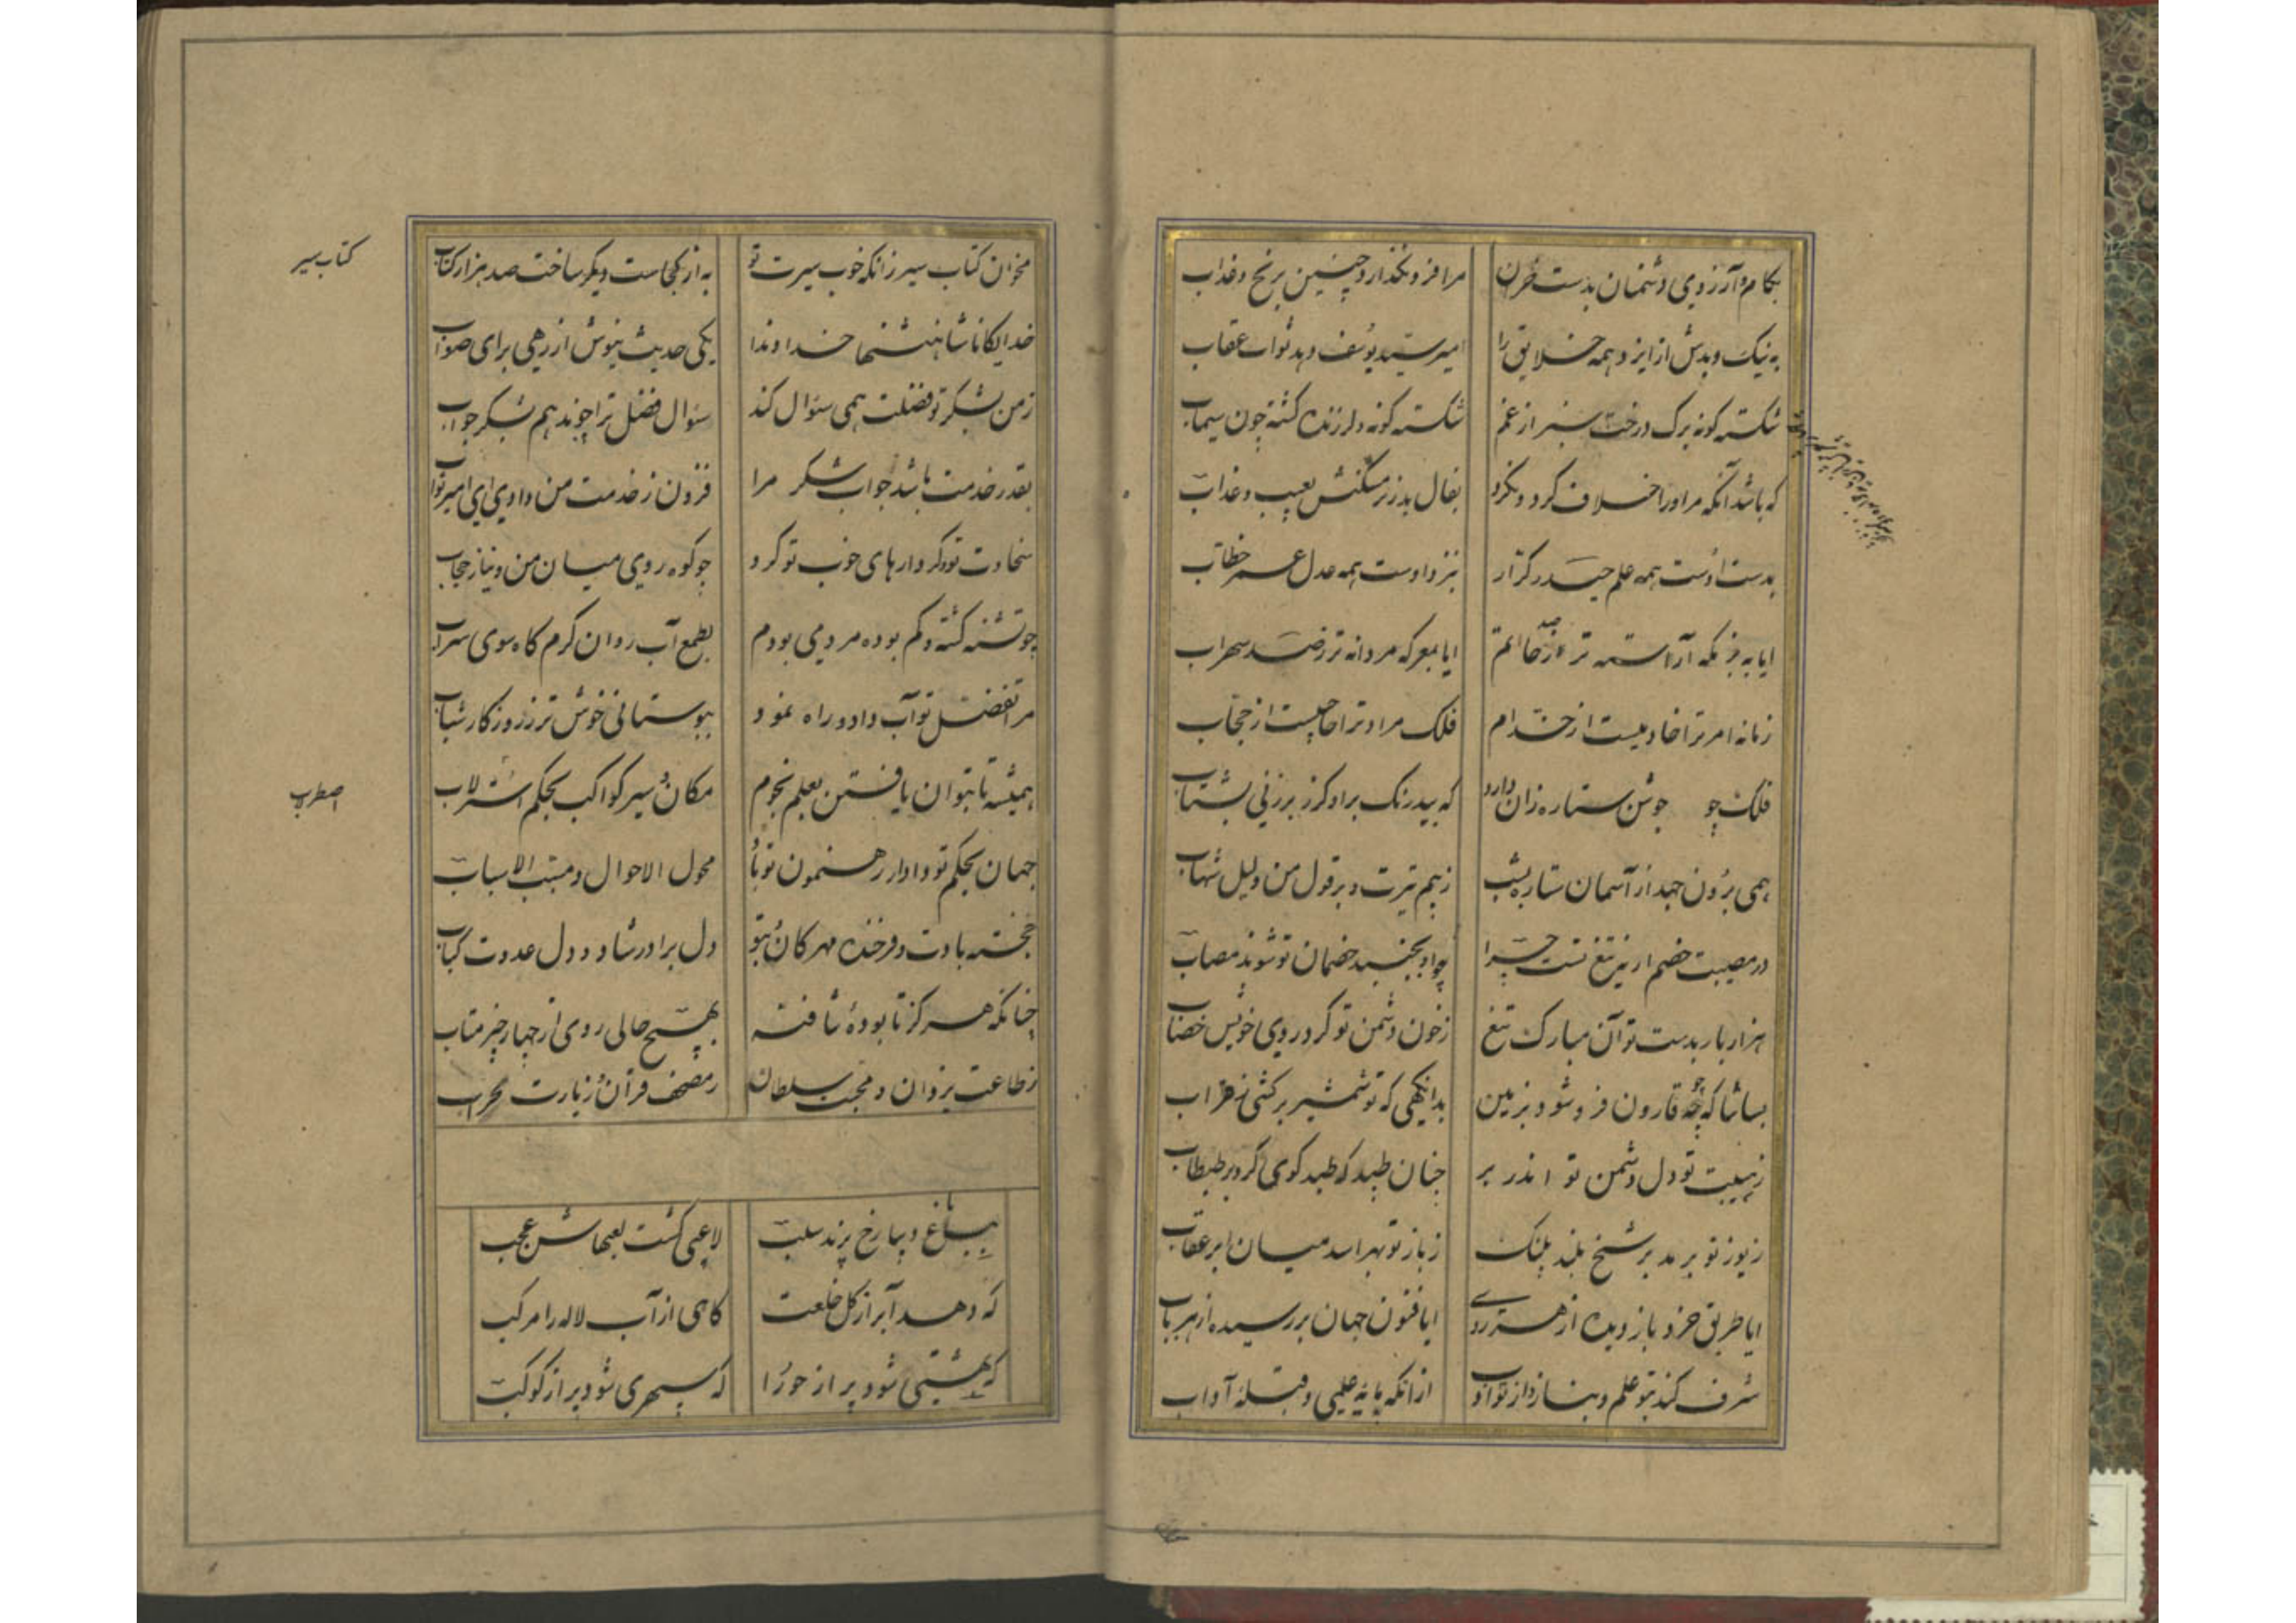 بکام و آرزوی دشمنان بدست حزن مرا فرو نگذارد چنین برنج و عذاب
به نیک و بدش از ایزد همه خلایق را امید یوسف و بد ثواب عقاب
شکسته گونه برگ درخت سبز از غم شکسته گونه و لرزنده گشته چون سیماب
که باشد آنکه مر او را خلاف کرد و نکرد بفال بد زبر مسکنش نعیب غراب
بدست اوست همه علم حیدر کرّار بنزد اوست همه عدل عمر خطاب
ایا به بزمگه آراسته تر از حاتم ایا بمعرکه مردانه تر ز صد سهراب
زمانه امر ترا خادمیست از خدّام فلک مراد ترا حاجبیست از حجّاب
فلک چو جوشن ستاره زان دارد که بیدرنگ برو گرز برزنی بشتاب
همی برون جهد از آسمان ستاره بشب ز بیم تیرت و بر قول من دلیل شهاب
در مصیبت خصم ار نه تیغ تست چرا چو او بجنبد خصمان تو شوند مصاب
هزار بار بدست تو آن مبارک تیغ ز خون دشمن تو کرد روی خویش خضاب
بسا شها که چو قارون فرو شود بزمین بدانگهی که تو شمشیر برکشی ز قراب
ز هیبت تو دل دشمن تو اندر بر چنان طپد که طپد گوی گرد بر طبطاب
ز یوز تو برمد بر شخ بلند پلنگ ز باز تو بهراسد میان ابر عقاب
ایا طریق خرد باز دیده از هر روی ایا فنون جهان بررسیده از هر باب
شرف کند بتو علم و بنازد از تو ادب از آنکه پایهٔ علمی و قبلهٔ آداب
مخوان کتاب سیر زانکه خوب سیرت تو به از کجاست و دیگر ساخت صد هزار کتاب
کتاب سیر
خدایگانا شاهنشها خداوندا یکی حدیث نیوش از رهی برای صواب
ز من بشکر تو فضلت همی سئوال کند سئوال فضل ترا چون دهم بشکر جواب
بقدر خدمت باشد جواب شکر مرا فزون ز خدمت من دادی ای امیر ثواب
سخاوت تو و کردارهای خوب تو کرد چو کوه روی میان من و نیاز حجاب
چو تشنه گشته و گم بوده مردمی بودم بطمع آب روان گرم گاه سوی سراب
مرا تفضل تو آب داد و راه نمود ببوستانی خوش تر ز روزگار شباب
همیشه تا بتوان یافتن بعلم نجوم مکان و سیر کواکب بحکم استرلاب
اصطرلاب
جهان بحکم تو و دادار رهنمون تو باد محول الاحوال و مسبب الاسباب
خجسته بادت و فرخنده مهرگان و بتو دل برادر شاد و دل عدوت کباب
چنانکه هرگز تا بودهٔ نتافتهٔ بهیچ حالی روی از چهار چیز متاب
ز طاعت یزدان و محبت سلطان ز مصحف قرآن و زیارت محراب
بباغ و بهار رخ پرند سلب لاعبی گشت لعبهاش عجب
گه دهد آبرا ز گل خلعت گاهی از آب لاله را مرکب
گه بهشتی شود پر از حورا گه سپهری شود پر از کوکب